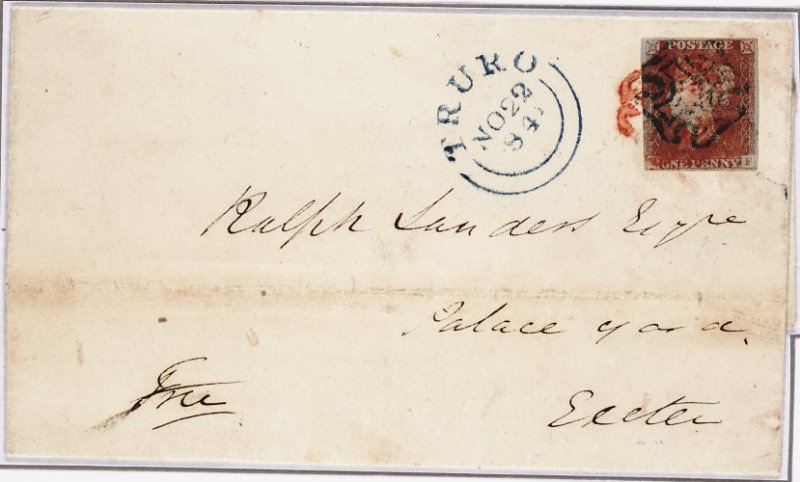 TRURO
NO 22
1841
POSTAGE
ONE PENNY
F
Ralph Sanders Esqre
Palace yard.
Exeter
Free